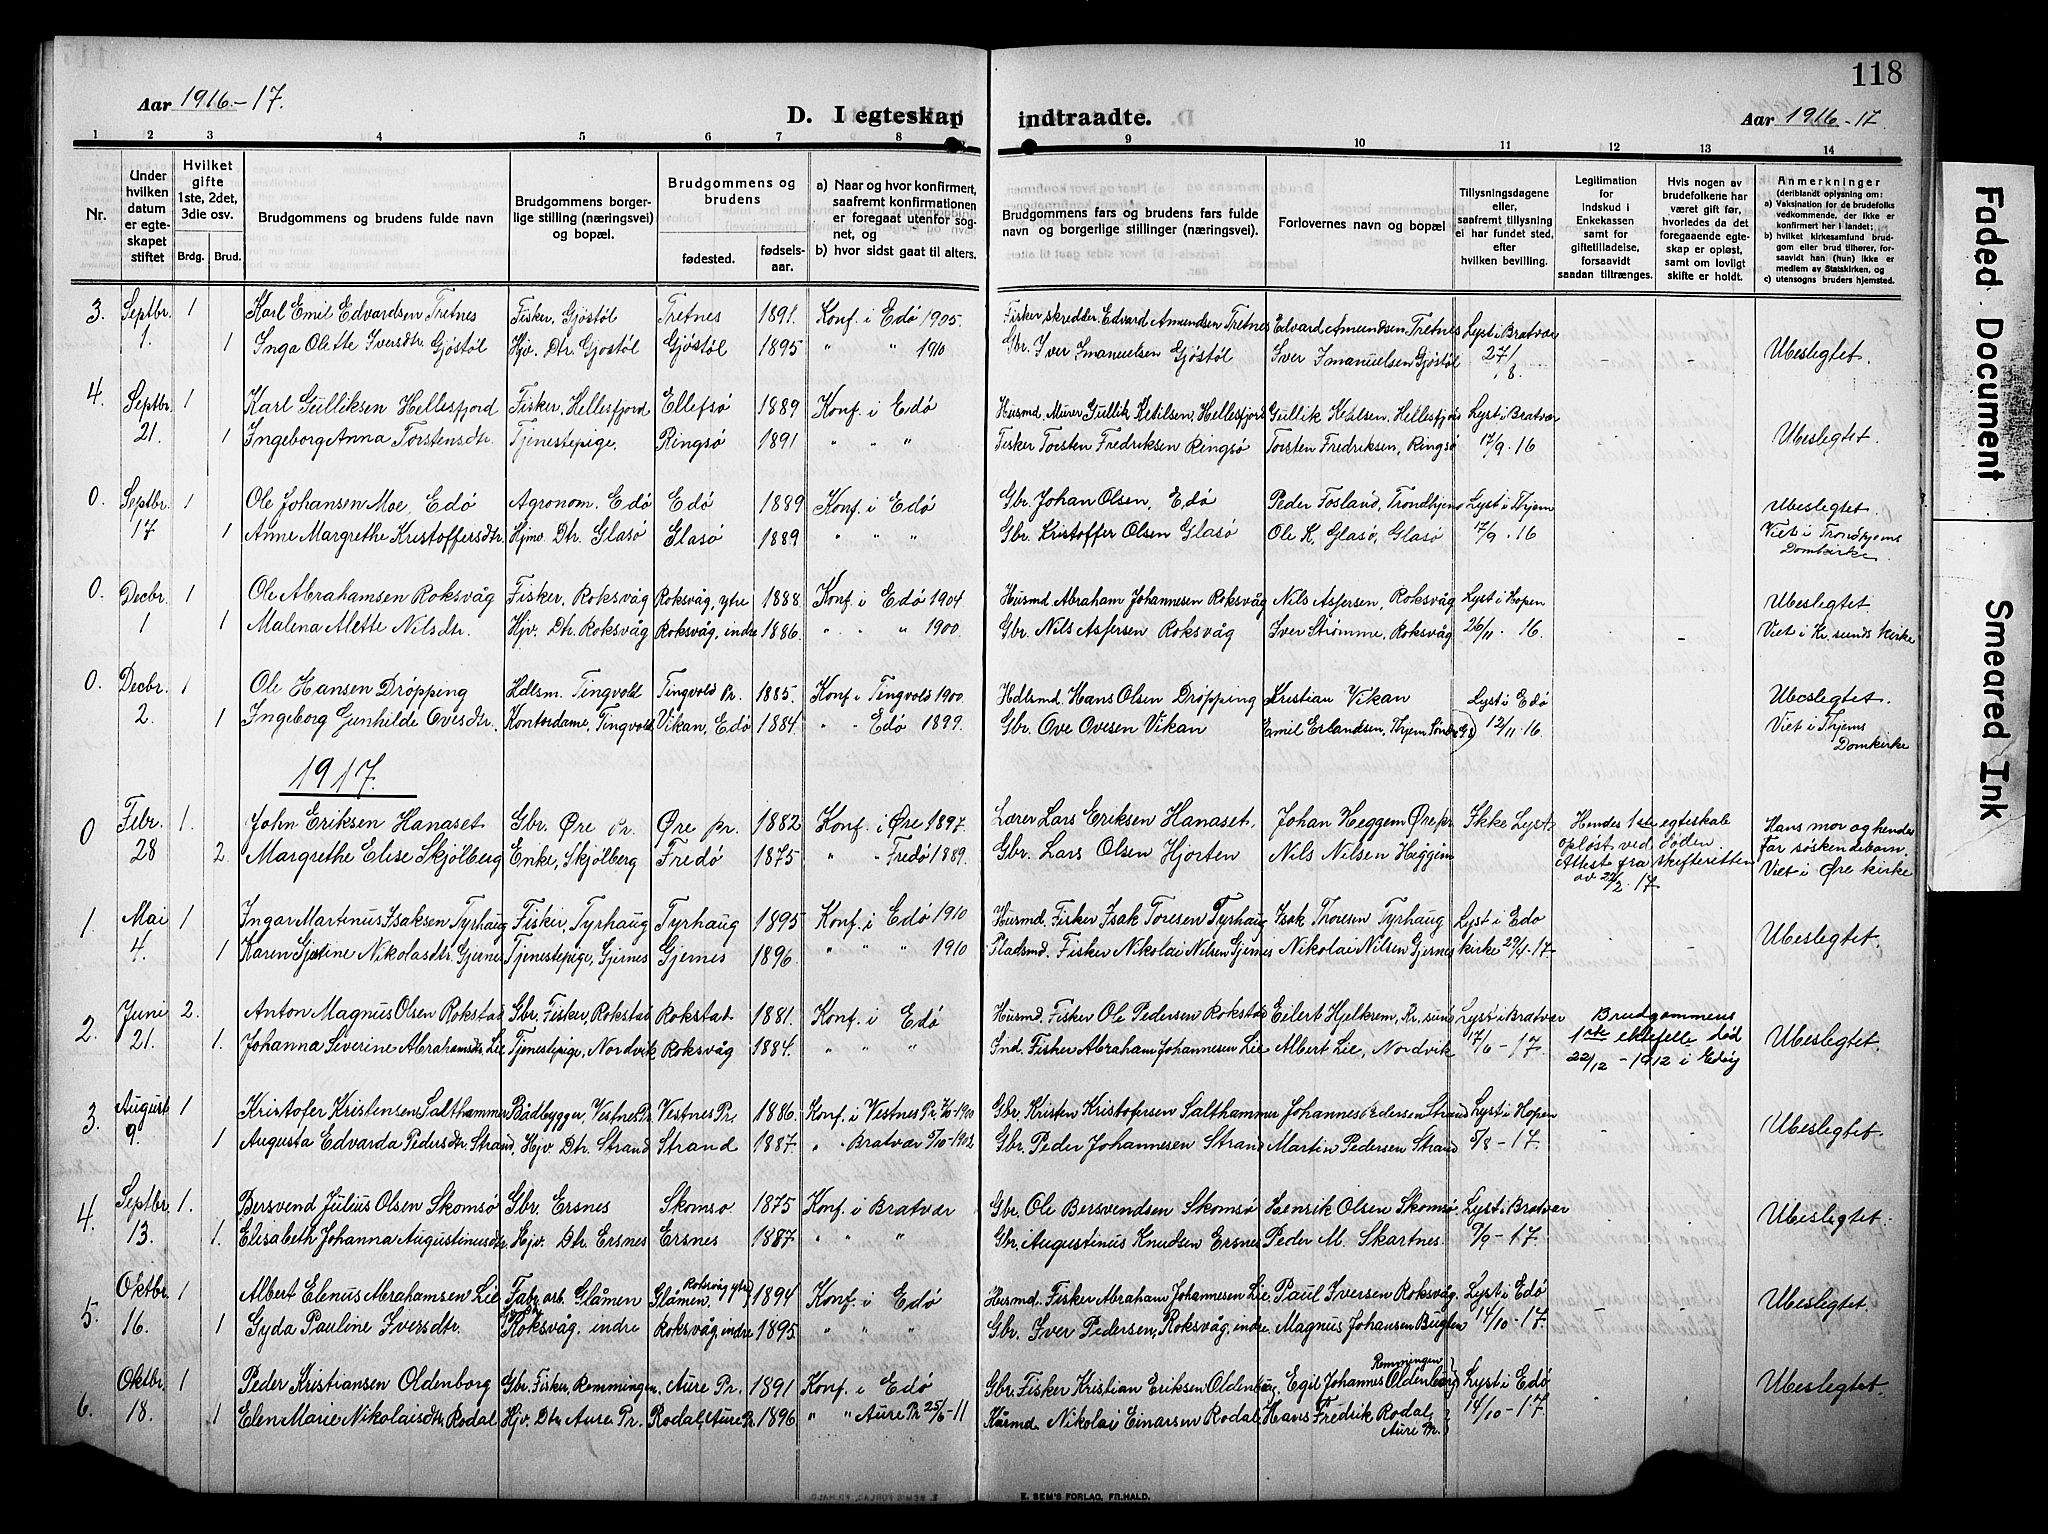 118
Aar 1916-17.
D. I egteskap indtraadte.
Aar 1916-17.
1 2 3 4 5 6 7 8 9 10 11 12 13 14
Nr.
Under hvilken datum er egteskapet stiftet
Hvilket gifte 1ste, 2det, 3die osv.
Brdg. Brud.
Brudgommens og brudens fulde navn
Brudgommens borgerlige stilling (næringsvei) og bopæl.
Brudgommens og brudens
fødested.
fødselsaar.
a) Naar og hvor konfirmert, saafremt konfirmationen er foregaat utenfor sognet, og
b) hvor sidst gaat til alters.
Brudgommens fars og brudens fars fulde navn og borgerlige stillinger (næringsvei).
Forlovernes navn og bopæl
Tillysningsdagene eller, saafremt tillysning ei har fundet sted, efter hvilken bevilling.
Legitimation for indskud i Enkekassen samt for giftetilladelse, forsaavidt saadan tiltrænges.
Hvis nogen av brudefolkene har været gift før, hvorledes da det foregaaende egteskap er opløst, samt om lovligt skifte er holdt.
Anmerkninger (deriblandt oplysning om:
a) Vaksination for de brudefolks vedkommende, der ikke er konfirmert her i landet;
b) hvilket kirkesamfund brudgom eller brud tilhører, forsaavidt han (hun) ikke er medlem av Statskirken, og
c) utensogns bruders hjemsted.
3. Septbr. 1 Karl Emil Edvardsen Tretnes Fisker, Gjøstøl Tretnes 1891. Konf. i Edø 1905. Fisker, skredder Edvard Amundsen Tretnes Edvard Amundsen Tretnes Lyst i Bratvær
1. 1 Inga Olette Iversdtr. Gjøstøl Hjv. Dtr. Gjøstøl Gjøstøl 1895 " " 1910 Gbr. Iver Imanuelsen Gjøstøl Iver Imanuelsen Gjøstøl 27/8. - - Ubeslegtet.
4. Septbr. 1 Karl Gulliksen Hellesfjord Fisker, Hellesfjord Ellefsø 1889 Konf. i Edø Husmd. Murer Gullik Ketilsen, Hellesfjord Gullik Ketilsen, Hellesfjord Lyst i Bratvær
21. 1 Ingeborg Anna Torstensdtr. Tjenestepige, Ringsø 1891 " " " Fisker Torsten Fredriksen Ringsø Torsten Fredriksen, Ringsø 17/9. 16 - - Ubeslegtet.
0. Septbr. 1 Ole Johansen Moe, Edø Agronom. Edø Edø 1889 Konf. i Edø Gbr. Johan Olsen, Edø Peder Fosland, Trondhjem Lyst i Thjem Ubeslegtet.
17 1 Anne Margrethe Kristoffersdtr. Hjmv. Dtr. Glasø Glasø 1889 " " " Gbr. Kristoffer Olsen Glasø Ole K. Glasø, Glasø 17/9. 16 - - Viet i Trondhjems
Domkirke
0. Decbr. 1 Ole Abrahamsen Roksvåg Fisker, Roksvåg Roksvåg, ytre 1888. Konf. i Edø 1904 Husmd. Abraham Johannesen Roksvåg Nils Asfersen, Roksvåg Lyst i Hopen Ubeslegtet
1 1 Malena Alette Nilsdtr. Hjv. Dtr. Roksvåg Roksvåg, indre 1886. " " " 1900. Gbr. Nils Asfersen Roksvåg Iver Strømme, Roksvåg 26/11. 16. - - Viet i Kr. sunds kirke
0. Decbr. 1 Ole Hansen Drøpping Hdlsm. Tingvold Tingvold Pr. 1885. Konf. i Tingvold 1900 Hdlsmd. Hans Olsen Drøpping Kristian Vikan Lyst i Edø Ubeslegtet.
2. 1 Ingeborg Gunhilde Ovesdtr. Kontordame, Tingvold Vikan, Edø 1884 " - Edø 1899. Gbr. Ove Ovesen Vikan Emil Erlandsen, Thjem 12/11. 16. Viet i Thjems
Domkirke
1917.
0 Febr. 1. John Eriksen Hanaset Gbr. Øre Pr. Øre pr. 1882 Konf. i Øre 1897. Lærer Lars Eriksen Hanaset. Johan Heggem Øre pr. Ikke Lyst. Hendes 1ste egteskab Hans mor og hendes
28 2. Margrethe Elise Skjølberg Enke, Skjølberg Fredø 1875 " " Fredø 1889. Gbr. Lars Olsen Hjorten Nils Nilsen Heggem opløst ved døden. Far søskendebarn.
Attest fra skifteretten Viet i Øre kirke
av 22/2. 17
1 Mai 1 Ingar Martinus Isaksen Tyrhaug Fisker, Tyrhaug Tyrhaug 1895 Konf. i Edø 1910 Husmd. Fisker Isak Toresen Tyrhaug Isak Thoresen Tyrhaug Lyst i Edø
4. 1 Karen Gjertine Nikolasdtr. Gjernes Tjenestepige, Gjernes Gjernes 1896. " " " 1910 Pladsmd. Fisker Nikolai Nilsen Gjernes Nikolai Nilsen Gjernes kirke 29/4-17. - - Ubeslegtet.
2. Juni 2. Anton Magnus Olsen Rokstad Gbr. Fisker, Rokstad Rokstad 1881. Konf. i Edø Husmd. Fisker Ole Pedersen Rokstad Eilert Hjelkrem, Kr. sund Lyst i Bratvær Brudgommens
21. 1. Johanna Severine Abrahamsdtr. Lie Tjenestepige, Nordvik Roksvåg 1884. " " " Ind. Fisker Abraham Johannesen Lie Albert Lie, Nordvik 17/6-17. 1ste ektefelle død Ubeslegtet.
22/12-1912 i Edøy
3. August 1 Kristofer Kristensen Salthammer Bådbygger, Vestnes Pr. Vestnes Pr. 1886. Konf. i Vestnes Pr. -1900 Gbr. Kristen Kristofersen Salthammer Johannes Pedersen Strand Lyst i Hopen
9. 1 Augusta Edvarda Pedersdtr. Strand, Hjv. Dtr. Strand Strand 1887. " " Bratvær 5/10-1902 Gbr. Peder Johannesen Strand Martin Pedersen Strand 5/8-17. Ubeslegtet.
4. Septbr. 1. Bersvend Julius Olsen Skomsø Gbr. Ersnes Skomsø 1875 Konf. i Bratvær Gbr. Ole Bersvendsen Skomsø Henrik Olsen Skomsø. Lyst i Bratvær
13. 1. Elisabeth Johanna Augustinusdtr. Hjv. Dtr. Ersnes Ersnes 1887. " " " Gbr. Augustinus Knudsen Ersnes Peder M. Skartnes. 9/9-17. Ubeslegtet.
5. Oktbr. 1 Albert Elenus Abrahamsen Lie Fabr. arb. Glåmen Glåmen. Roksvåg ytre 1894 Konf. i Edø Husmd. Fisker Abraham Johannesen Lie Paul Iversen Roksvåg. Lyst i Edø
16. 1 Gyda Pauline Iversdtr. Roksvåg, indre Roksvåg, indre 1895. " " " Gbr. Iver Pedersen, Roksvåg, indre Magnus Johansen Bugten 14/10-17. - - Ubeslegtet.
6. Oktbr. 1 Peder Kristiansen Oldenborg Gbr. Fisker, Remmingen, Aure Pr. 1891 Konf. i Edø Gbr. Fisker Kristian Eriksen Oldenburg, Egil Johannes Oldenborg Remmingen Lyst i Edø
18. 1 Elen Marie Nikolaisdtr. Rodal Hjv. Dtr. Aure Pr. Rodal, Aure Pr. 1896 " " Aure Pr. 25/6-11 Kårmd. Nikolai Einarsen Rodal Hans Fredrik Rodal, Aure Pr. 14/10-17. - - Ubeslegtet.
E. SEM'S FORLAG, FR.HALD.
Faded Document
Smeared Ink